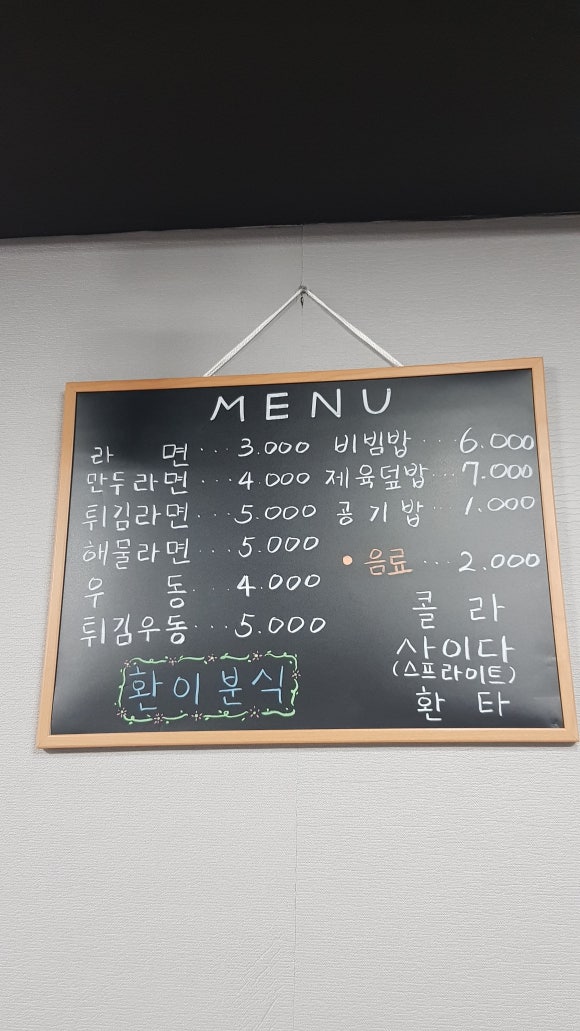 MENU
라 면 ... 3.000
만두라면 ... 4.000
튀김라면 ... 5.000
해물라면 ... 5.000
우 동 ... 4.000
튀김우동 ... 5.000
환이분식
비빔밥 ... 6.000
제육덮밥 ... 7.000
공기밥 ... 1.000
• 음료 ... 2.000
콜 라
사이다
(스프라이트)
환 타